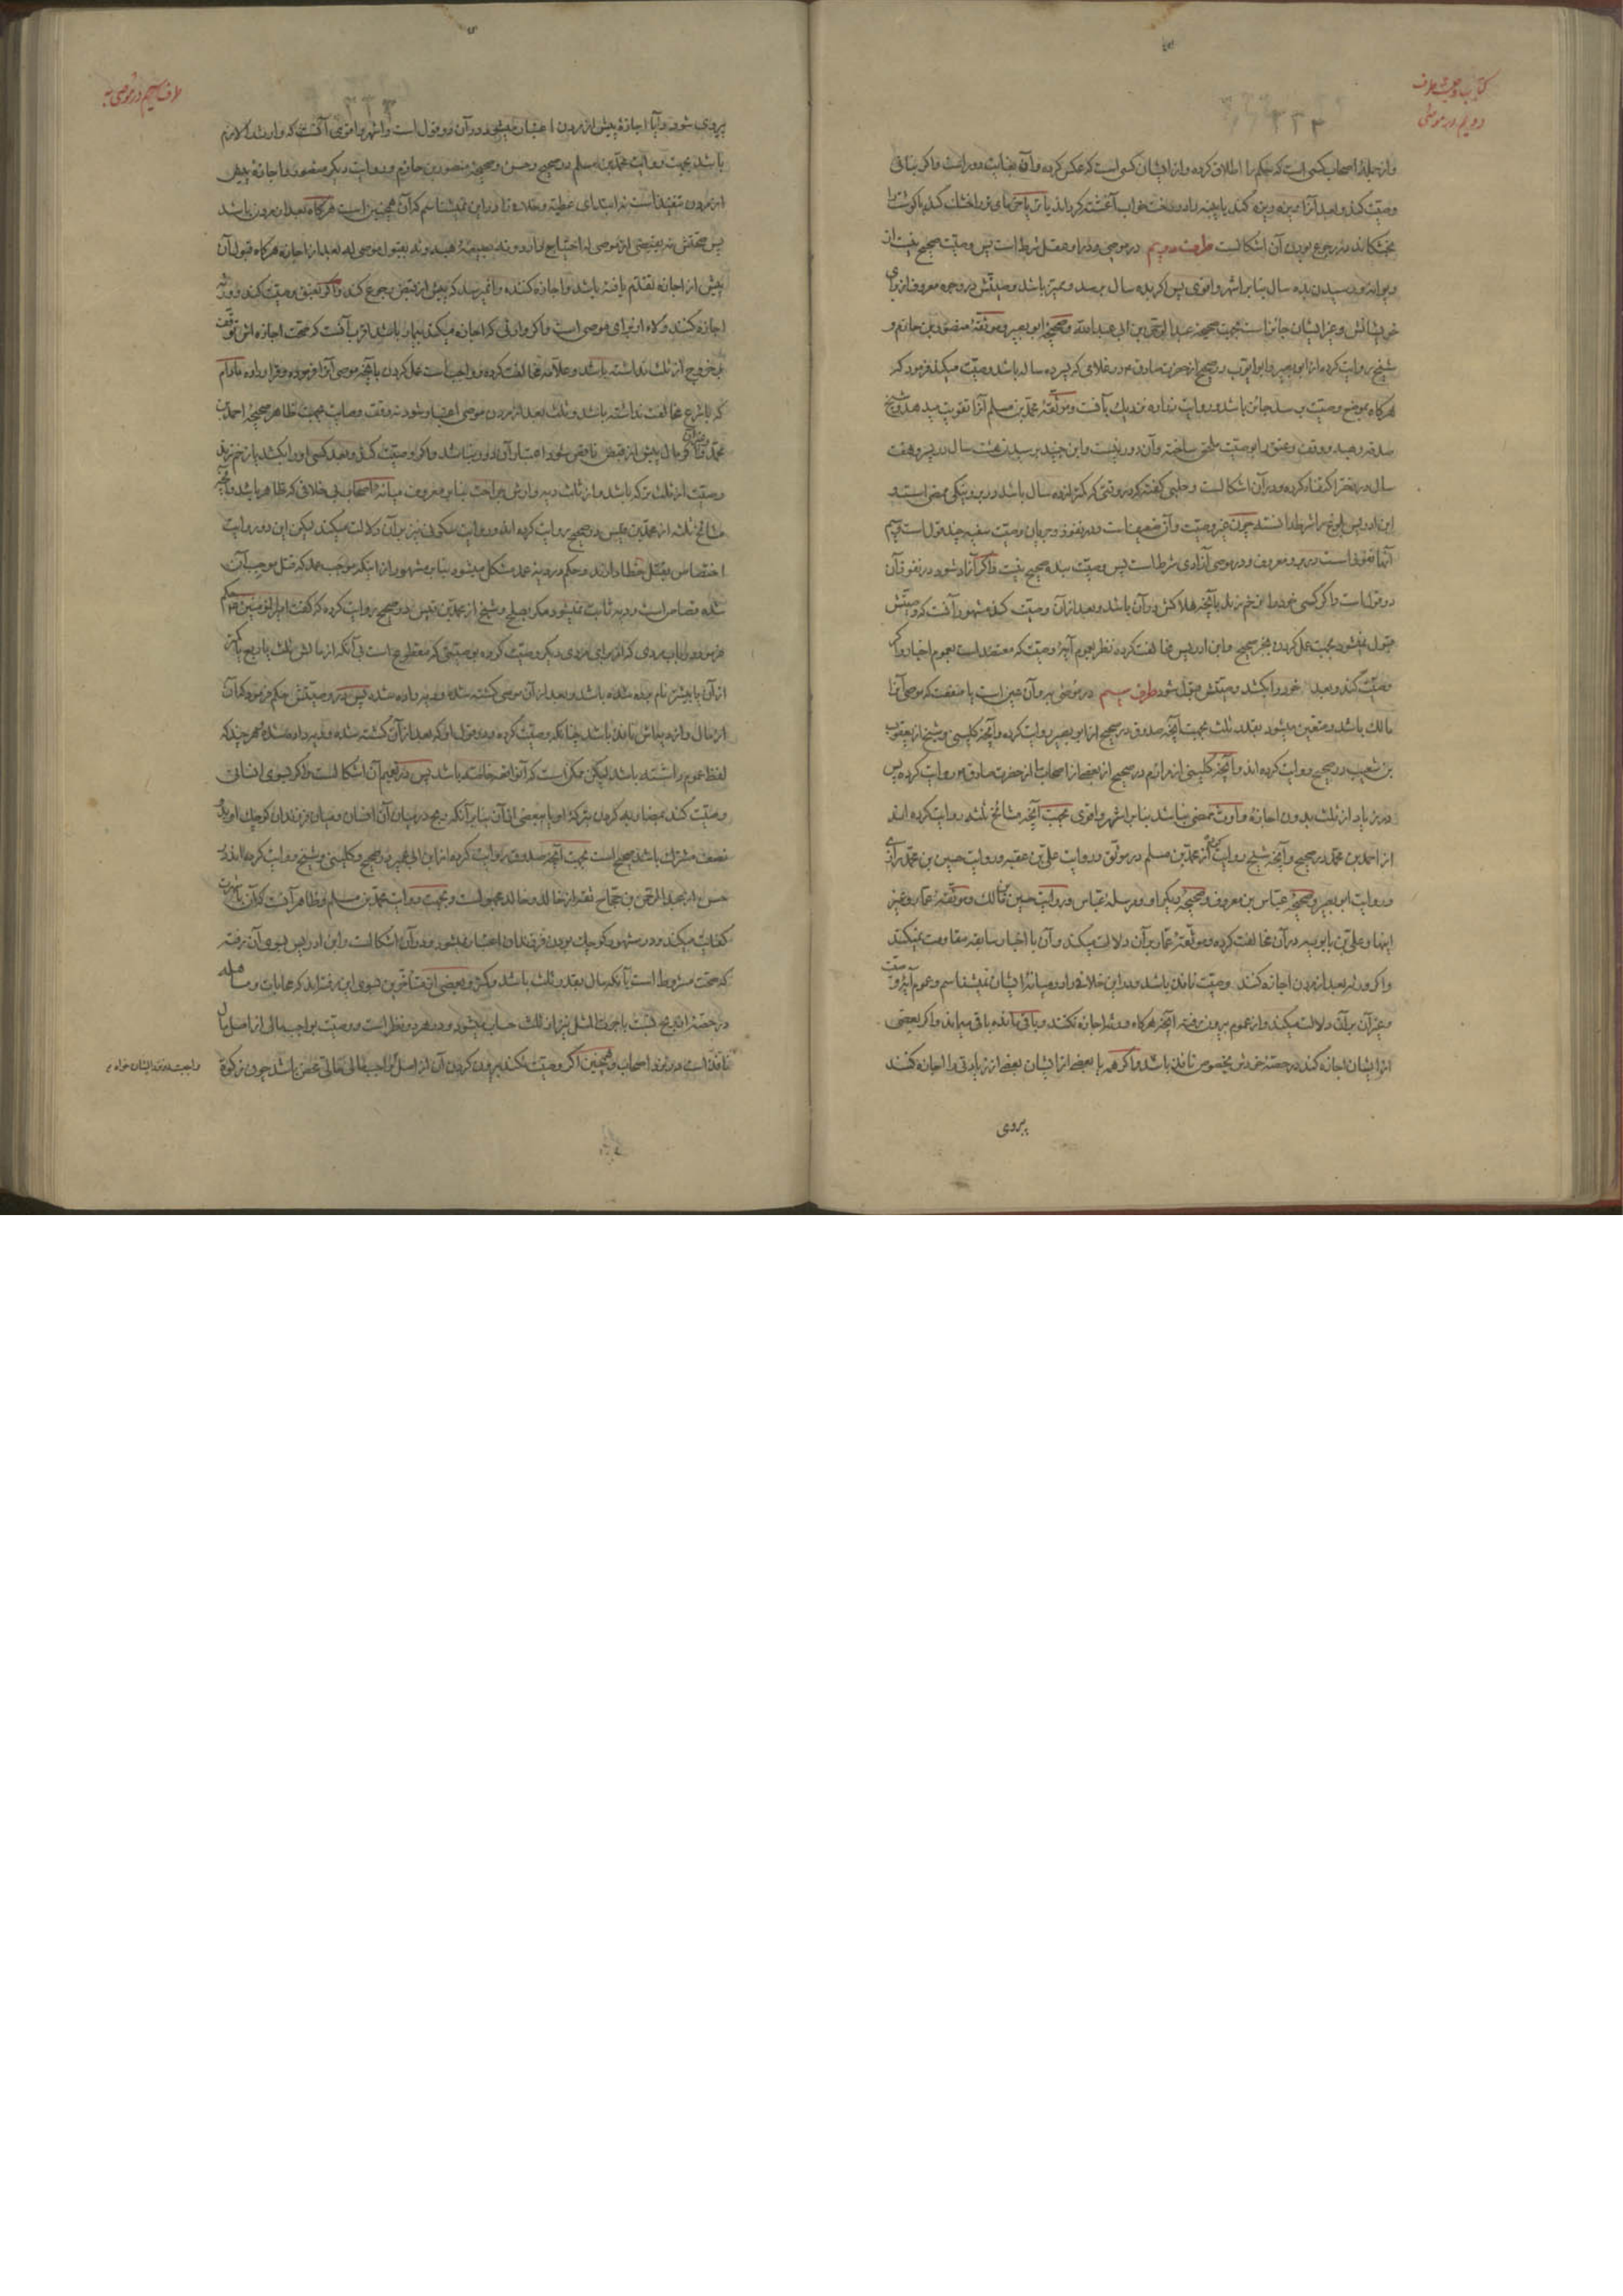 کتاب وصیت طرف
دویم در موصی
۳۳۳
و از جملهٔ اصحاب کسی است که حکم را اطلاق کرده و از ایشان کسی است که عکس کرده و آن بغایت دور است و اگر بنانی
وصیت کند و بعد از آن ریزه ریزه کند یا پنبه را در رخت خواب آغشته گرداند یا یا گوشت را
بخشکاند در رجوع بودن آن اشکالست طرف دویم در موصی و در او عقل شرط است پس وصیت صحیح نیست از
دیوانه و رسیدن بده سال بنا بر اشهر و اقوی پس اگر بده سال برسد و ممیز باشد وصیتش در وجه معروف از برای
خویشانش و غیر ایشان جائز است بجهت صحیحه عبد الرحمن بن ابی عبد الله و صحیحهٔ ابو بصیر و موثقهٔ منصور بن حازم و
شیخ روایت کرده از ابو بصیر و ابو ایوب در صحیح از حضرت صادق ع در غلامی که پسر ده ساله باشد و وصیت میکند فرمود که
هرگاه بموضع وصیت برسد جائز باشد و روایت زراره نزدیک بآنست و موثقهٔ محمد بن مسلم آنرا تقویت میدهد و شیخ
صدقه و هبه و وقف و عتق را بوصیت ملحق ساخته و آن دور نیست و ابن جنید برسیدن هشت سال در پسر و هفت
سال در دختر اکتفا کرده و در آن اشکالست و حلبی گفته که در وقتی که کمتر از ده سال باشد در بر و نیکی ممضی است و
ابن ادریس بلوغ را شرط دانسته چون غیر وصیت و آن ضعیفست و در نفوذ و جریان وصیت سفیه چند قول است سیم
آنها نفوذ است در بر و معروف و در موصی آزادی شرط است پس وصیت بنده صحیح نیست و اگر آزاد شود در نفوذ آن
دو قول است و اگر کسی خود را زخم بزند بآنچه هلاکش در آن باشد و بعد از آن وصیت کند مشهور آنست که وصیتش
قبول نمیشود بجهت عمل کردن بخبر صحیح و ابن ادریس مخالفت کرده نظر بعموم آیهٔ وصیت که معتضد است بعموم اخبار و اگر
وصیت کند و بعد خود را بکشد وصیتش قبول شود طرف سیم در موصی به و آن عین است یا منفعت که موصی آنرا
مالک باشد و متعین میشود بقدر ثلث بجهت آنچه صدوق در صحیح از ابو بصیر روایت کرده و آنچه کلینی و شیخ از یعقوب
بن شعیب در صحیح روایت کرده اند و آنچه کلینی از مرازم در صحیح از بعضی از اصحاب ما از حضرت صادق ع روایت کرده پس
در زیاد از ثلث بدون اجازهٔ وارث ممضی نباشد بنا بر اشهر و اقوی بجهت آنچه مشائخ ثلثه روایت کرده اند
از احمد بن محمد در صحیح و آنچه شیخ روایت کرده از محمد بن مسلم در موثق و روایت علی بن عقبه و روایت حسین بن محمد رازی
و روایت ابو بصیر و صحیحهٔ عباس بن معروف و صحیحهٔ دیگر او و مرسلهٔ عباس و روایت حسین بن مالک و موثقهٔ عمار و غیر
اینها و علی بن بابویه در آن مخالفت کرده و موثقهٔ عمار بر آن دلالت میکند و آن با اخبار سابقه مقاومت نمیکند
و اگر ورثه بعد از مردن اجازه کنند وصیت نافذ باشد و در این خلافی را در میانهٔ ایشان نمیشناسم و عموم آیهٔ وصیت
و غیر آن بر آن دلالت میکند و از عموم بیرون رفته آنچه هرگاه ورثه اجازه نکنند و باقی مانده باقی میماند و اگر بعضی
از ایشان اجازه کند در حصهٔ خودش بخصوص نافذ باشد و اگر همه یا بعضی از ایشان بعضی از زیادتی را اجازه کنند
بیروی
طرف سیم در موصی به
بیروی شود و آیا اجازهٔ پیش از مردن اعتبار میشود در آن دو قول است و اشهر و اقوی آنست که وارث را لازم
باشد بجهت روایت محمد بن مسلم در صحیح و حسن و صحیحهٔ منصور بن حازم و روایت دیگر منصور و اجازهٔ پیش
از مردن تنفیذ است نه ابتدای عطیه و خلافی را در این نمیشناسم که آن همچنین است هرگاه بعد از مردن باشد
پس صحتش نه بقبضی از موصی له احتیاج دارد و نه بصیغهٔ هبه و نه بقبول موصی له بعد از اجازه هرگاه قبول آن
پیش از اجازه تقدم یافته باشد و اجازه کننده را نمیرسد که پیش از قبض رجوع کند و اگر بعتق وصیت کند و ورثه
اجازه کنند ولاء او برای موصی است و اگر وارثی که اجازه میکند بیمار باشد اقرب آنست که صحت اجازه اش توقف
بر خروج از ثلث نداشته باشد و علامه مخالفت کرده و واجبست عمل کردن بآنچه موصی آنرا فرموده و قرار داده مادام
که با شرع مخالفت نداشته باشد و ثلث بعد از مردن موصی اعتبار شود نه وقت وصایت بجهت ظاهر صحیحهٔ احمد بن
محمد و اگر مال پیش از قبض ناقص شود اعتبار آن دور نباشد و اگر او وصیت کند و بعد کسی او را بکشد یا زخم زند
وصیت از ثلث ترکه باشد و از ثلث دیه و ارش جراحت بنا بر معروف میانهٔ اصحاب بی خلافی که ظاهر باشد و آنچه
مشائخ ثلثه از محمد بن قیس در صحیح روایت کرده اند و روایت سکونی نیز بر آن دلالت میکند لیکن این دو روایت
اختصاص بقتل خطا دارند و حکم در دیهٔ عمد مشکل میشود بنا بر مشهور از اینکه موجب عمد که قتل موجب آن
شده قصاص است و دیه ثابت نمیشود مگر بصلح و شیخ از محمد بن قیس در صحیح روایت کرده که گفت امیر المؤمنین ع حکم
فرمود در باب مردی که از برای مردی دیگر وصیت کرده بوصیتی که مقطوع است بی آنکه از مالش ثلث یا ربع یا کمتر
از آن یا بیشتر نام برده شده باشد و بعد از آن موصی کشته شده و دیه داده شده پس در وصیتش حکم فرمود که آن
از مال و از دیه اش نافذ باشد چنانکه وصیت کرده و در قول او که بعد از آن کشته شده و دیه داده شده هر چند که
لفظ عموم را نداشته باشد لیکن ممکن است که آنرا فهمانده باشد پس در تعمیم آن اشکالست و اگر بسوی انسانی
وصیت کند بمضاربه کردن بترکهٔ او یا ببعضی از آن بنا بر آنکه ربح در میان آن انسان و میان فرزندان کوچک او
نصف مشترک باشد صحیح است بجهت آنچه صدوق روایت کرده از ابن ابی عمیر در صحیح و کلینی و شیخ روایت کرده اند در
حسن از عبد الرحمن بن حجاج ثقه از خالد و خالد مجهولست و بجهت روایت محمد بن مسلم و ظاهر آنست که آن با شهرت
کفایت میکند و در مشهور کوچک بودن فرزندان اعتبار میشود و در آن اشکالست و ابن ادریس بسوی آن رفته
که صحت مشروط است بآنکه مال بقدر ثلث باشد و کمتر و بعضی از متأخرین بسوی این رفته اند که محابات و مساهله
در حصه از ربح نسبت باجرت المثل نیز از ثلث حساب میشود و در هر دو نظر است و وصیت بواجب مالی از اصل مال
نافذ است در نزد اصحاب و همچنین اگر وصیت نکند بیرون کردن آن از اصل واجب مالی مالی محض باشد چون زکوة